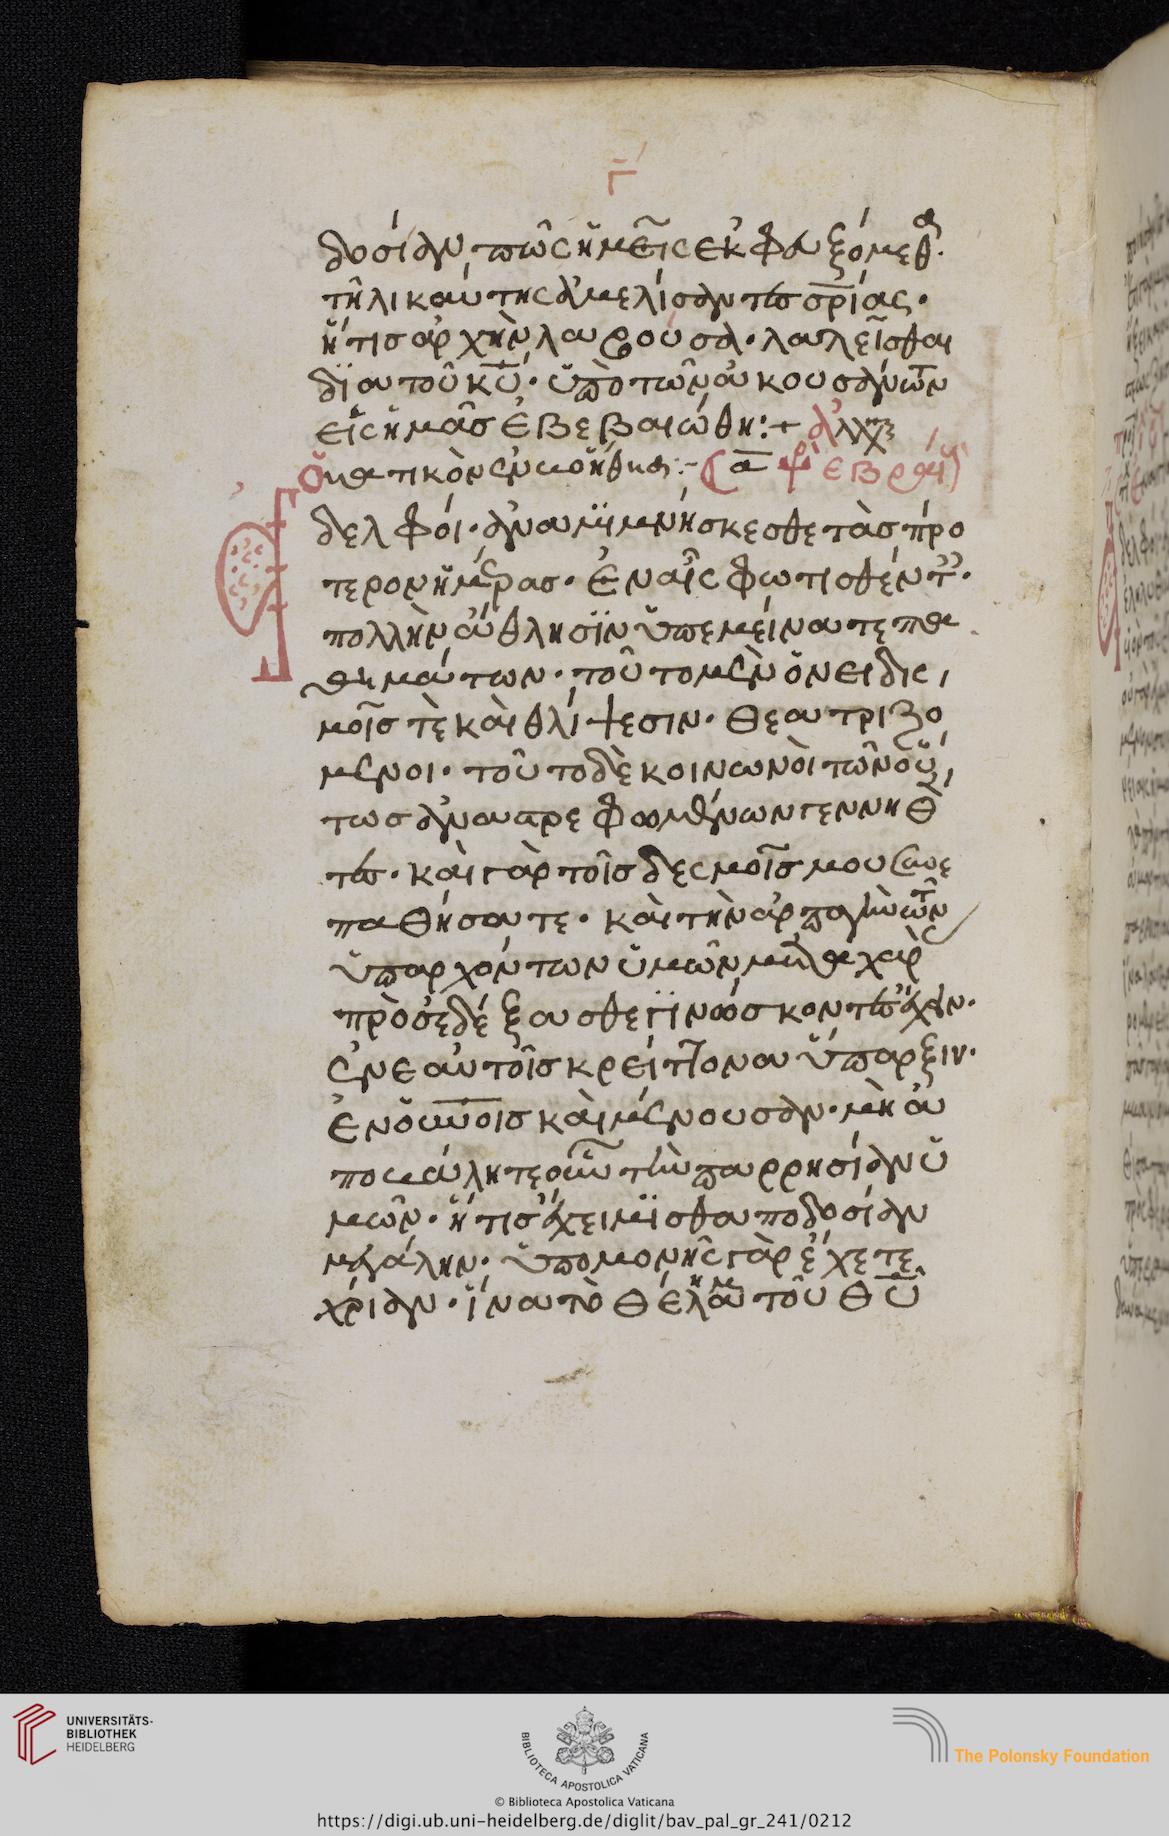 γ
δοσίαν· πῶς ἡμεῖς ἐκφευξόμεθα
τηλικαύτης ἀμελίσαντες σρίας·
ἥτις ἀρχὴν λαβοῦσα· λαλεῖσθαι
διὰ τοῦ κυ· ὑπὸ τῶν ἀκουσάντων
εἰς ἡμᾶς ἐβεβαιώθη:+
πρὸς ἑβραί
δελφοί· ἀναμιμνήσκεσθε τὰς πρό
τερον ἡμέρας· ἐν αἷς φωτισθέντες·
πολλὴν ἄθλησιν ὑπεμείνατε πα
θημάτων· τοῦτο μὲν ὀνειδις
μοῖς τὲ καὶ θλίψεσιν· θεατριζό
μενοι· τοῦτο δὲ κοινωνοὶ τῶν οὕ
τως ἀναστρεφομένων γεννηθ
τες· καὶ γὰρ τοῖς δεσμοῖς μου συνε
παθήσατε· καὶ τὴν ἁρπαγὴν τῶν
ὑπαρχόντων ὑμῶν μετὰ χαρᾶς
προσεδέξασθε γινώσκοντες ἔχειν·
ἐν ἑαυτοῖς κρείττονα ὕπαρξιν·
ἐν οὐνοις καὶ μένουσαν· μὴ ἀ
ποβάλητε οὖν τὴν παρρησίαν ὑ
μῶν· ἥτις ἔχει μισθαποδοσίαν
μεγάλην· ὑπομονῆς γὰρ ἔχετε
χρίαν· ἵνα τὸ θέλημα τοῦ θυ
UNIVERSITÄTS-
BIBLIOTHEK
HEIDELBERG
BIBLIOTECA APOSTOLICA VATICANA
The Polonsky Foundation
© Biblioteca Apostolica Vaticana
https://digi.ub.uni-heidelberg.de/diglit/bav_pal_gr_241/0212